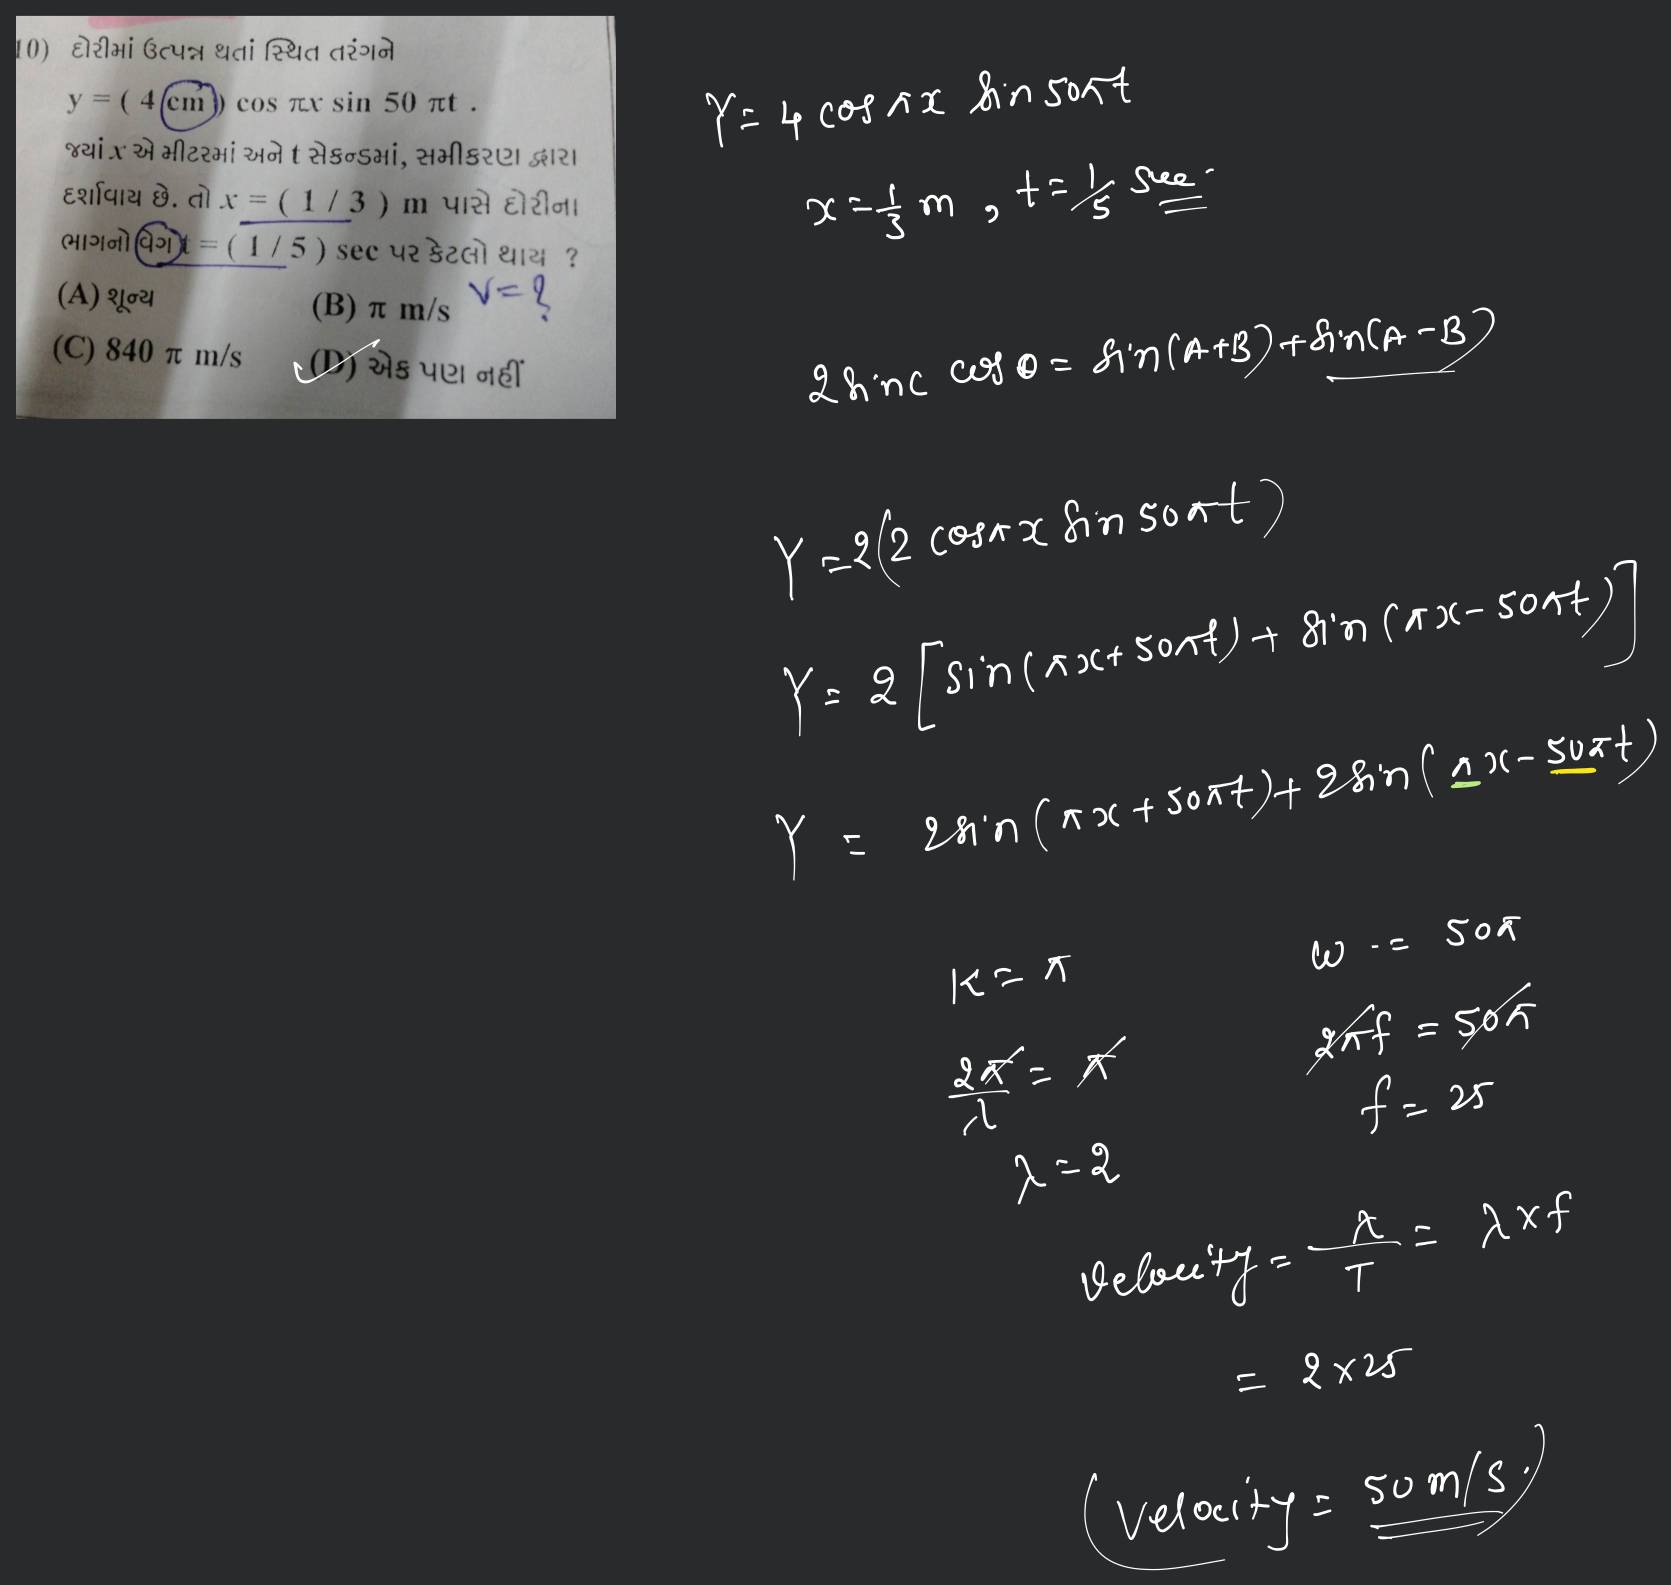 10) દોરીમાં ઉત્પન્ન થતાં સ્થિત તરંગને
y = ( 4 cm ) cos πx sin 50 πt .
જ્યાં x એ મીટરમાં અને t સેકન્ડમાં, સમીકરણ દ્વારા
દર્શાવાય છે. તો x = ( 1 / 3 ) m પાસે દોરીના
ભાગનો વેગ t = ( 1 / 5 ) sec પર કેટલો થાય ?
V = ?
(A) શૂન્ય (B) π m/s
(C) 840 π m/s (D) એક પણ નહીં
Y = 4 cos πx sin 50πt
x = 1/3 m , t = 1/5 sec.
2 sinC cosD = sin(A+B) + sin(A-B)
Y = 2(2 cosπx sin 50πt)
Y = 2 [sin(πx + 50πt) + sin(πx - 50πt)]
Y = 2sin(πx + 50πt) + 2sin(πx - 50πt)
K = π
2π/λ = π
λ = 2
ω = 50π
2πf = 50π
f = 25
Velocity = λ/T = λ×f
= 2×25
Velocity = 50 m/s.